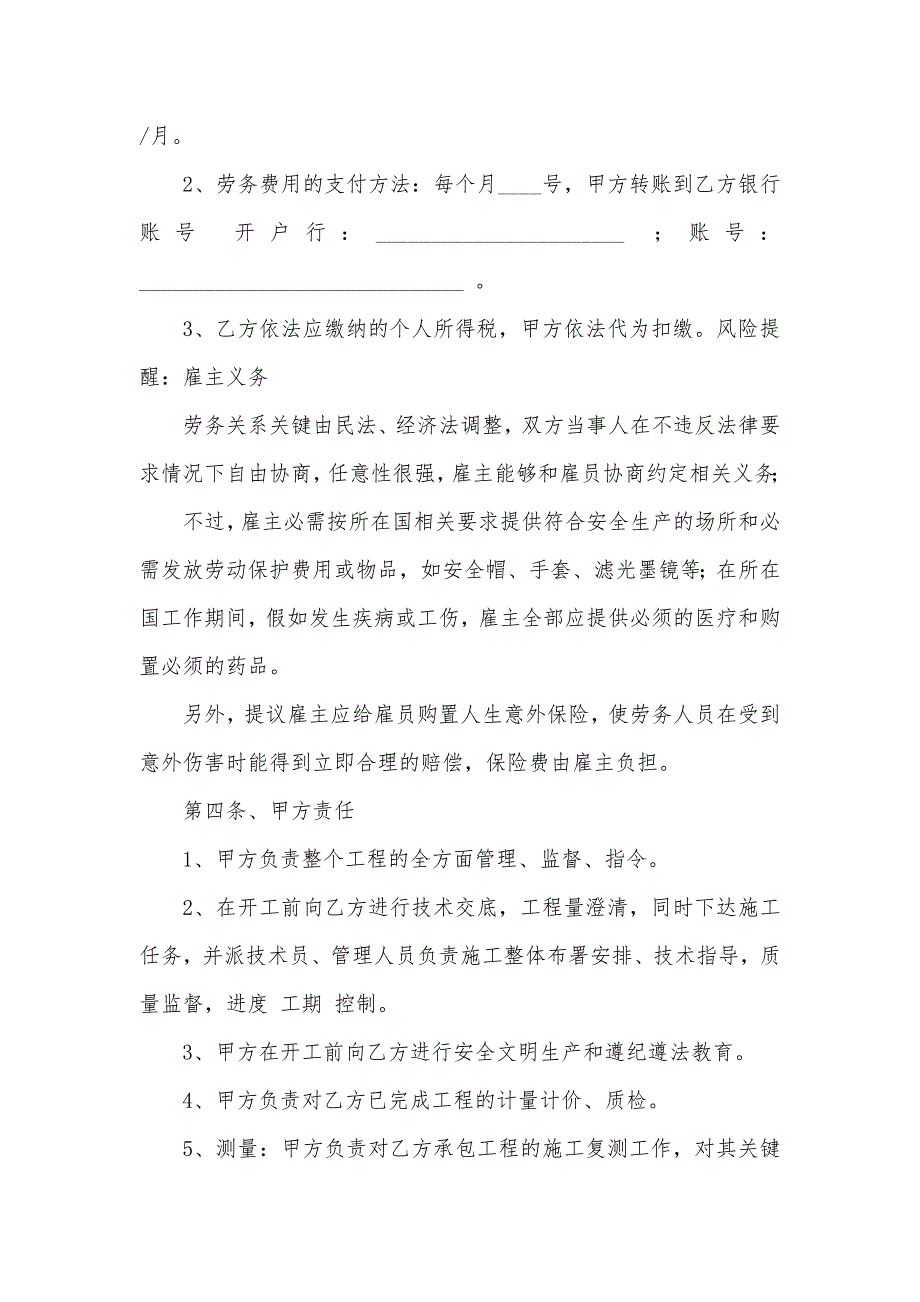 /月。
2、劳务费用的支付方法：每个月____号，甲方转账到乙方银行
账号 开户行：_______________________ ；账号：
______________________________ 。
3、乙方依法应缴纳的个人所得税，甲方依法代为扣缴。风险提
醒：雇主义务
劳务关系关键由民法、经济法调整，双方当事人在不违反法律要
求情况下自由协商，任意性很强，雇主能够和雇员协商约定相关义务；
不过，雇主必需按所在国相关要求提供符合安全生产的场所和必
需发放劳动保护费用或物品，如安全帽、手套、滤光墨镜等；在所在
国工作期间，假如发生疾病或工伤，雇主全部应提供必须的医疗和购
置必须的药品。
另外，提议雇主应给雇员购置人生意外保险，使劳务人员在受到
意外伤害时能得到立即合理的赔偿，保险费由雇主负担。
第四条、甲方责任
1、甲方负责整个工程的全方面管理、监督、指令。
2、在开工前向乙方进行技术交底，工程量澄清，同时下达施工
任务，并派技术员、管理人员负责施工整体布署安排、技术指导，质
量监督，进度 工期 控制。
3、甲方在开工前向乙方进行安全文明生产和遵纪遵法教育。
4、甲方负责对乙方已完成工程的计量计价、质检。
5、测量：甲方负责对乙方承包工程的施工复测工作，对其关键